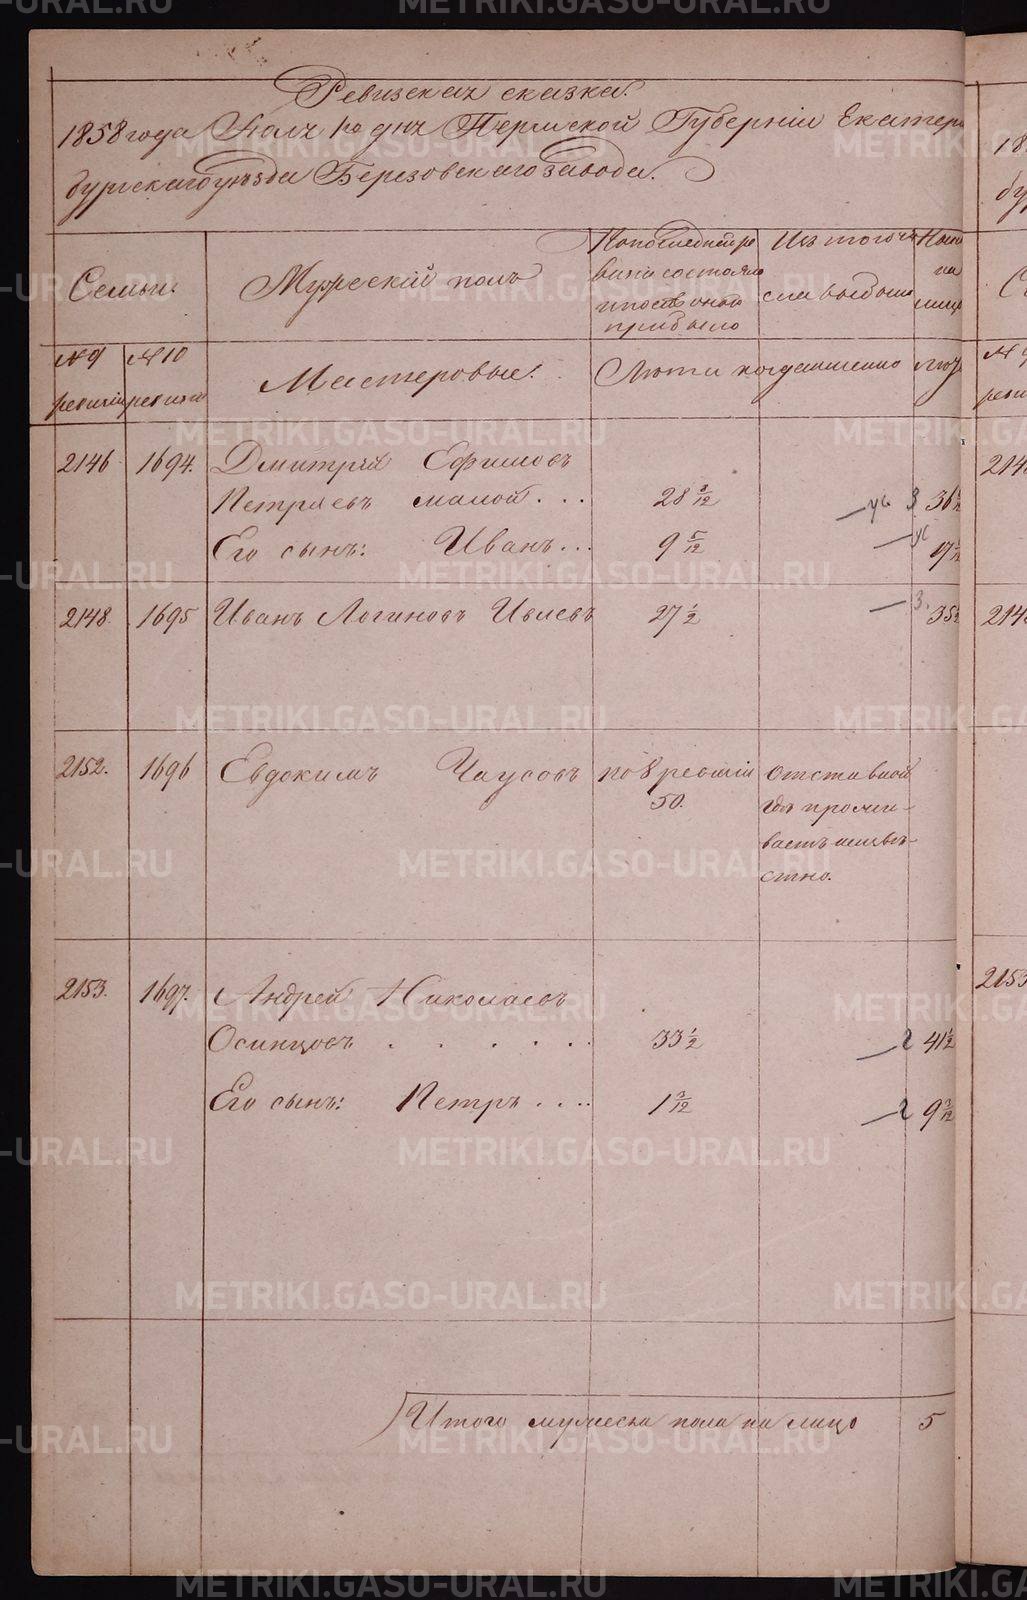 Ревизская сказка.
1858 года Июля 1го дня Пермской Губернии Екатерин
бургскаго уѣзда Березовскаго завода.
Семьи.
Мужескій полъ
По последней ре
визіи состояло
и после оной
прибыло
Изъ того чи
сла выбыло
Ныне
на
лицо
№ 9
ревизіи
№ 10
ревизіи
Мастеровые.
Лѣта
когда именно
Лѣта
2146
1694.
Дмитрій Ефимовъ
Петряевъ малой . . .
28 3/12
36
Его сынъ: Иванъ . . .
9 5/12
17
2148.
1695
Иванъ Логиновъ Ивлевъ
27 1/2
3.
35
2152.
1696
Евдокимъ Чаусовъ
по 8 ревизіи
50.
отставной
гдѣ прожи-
ваетъ неизвѣ-
стно.
2153.
1697.
Андрей Николаевъ
Осинцовъ . . . . . .
33 1/2
2
41 1/2
Его сынъ: Петръ . . . .
1 3/12
2
9 3/12
Итого мужеска пола на лицо
5
18
2148
2153
METRIKI.GASO-URAL.RU